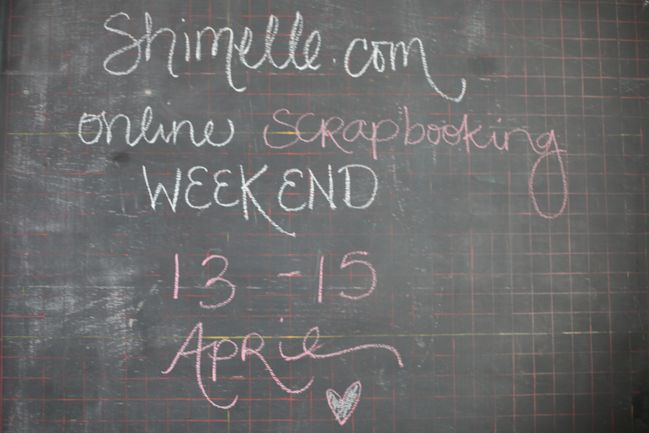 Shimelle.com
online scrapbooking
WEEKEND
13 - 15
April